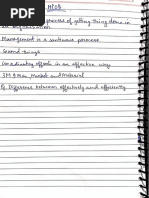 process of getting thing done in
an organisation
Management is a continuous process
Second things
Coordinating efforts in an effective way
3M → Men, Market and Material
Q Difference between effectively and efficiently